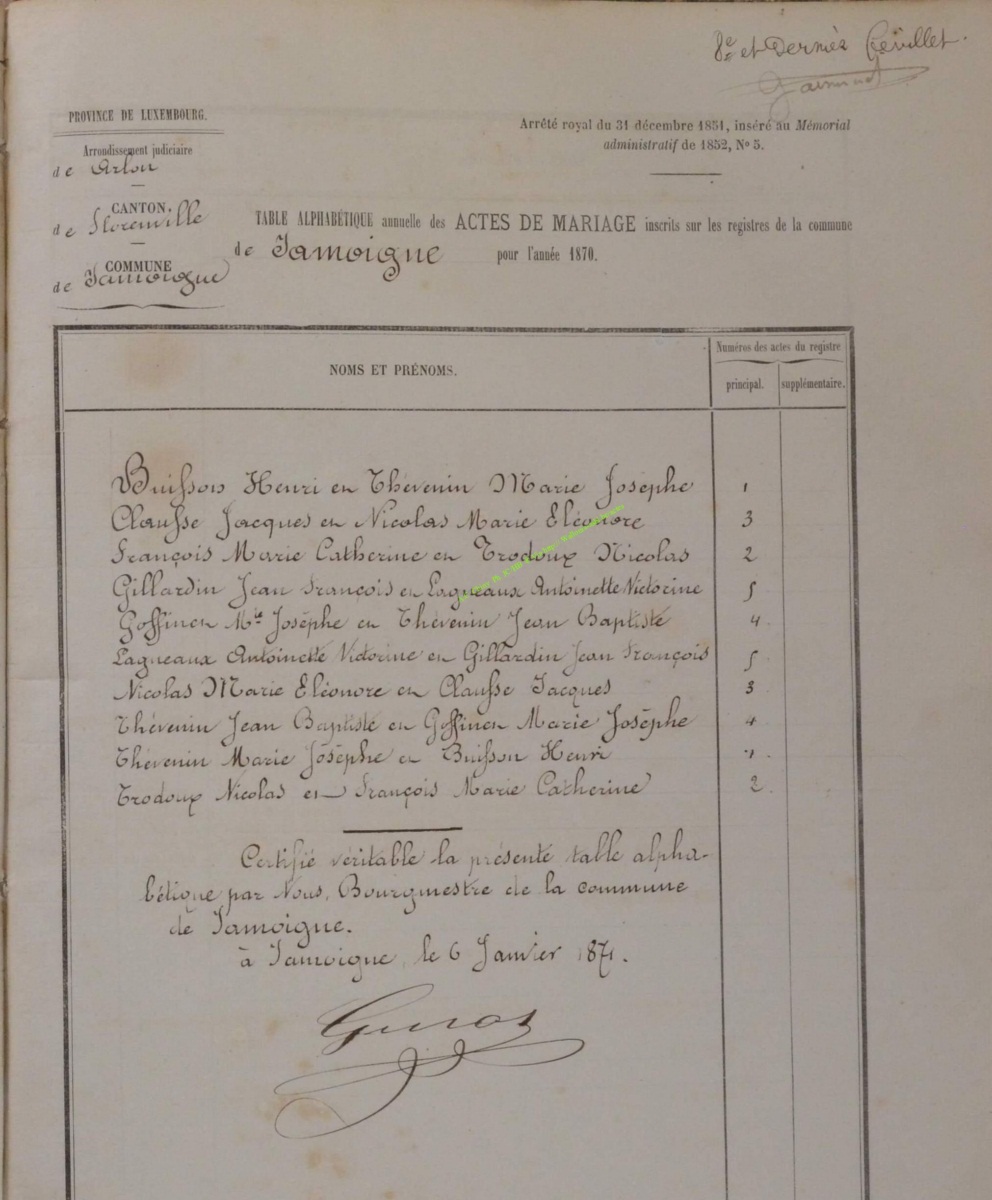 8e et Dernier feuillet.
PROVINCE DE LUXEMBOURG.
Arrondissement judiciaire
de Arlon
CANTON.
de Florenville
COMMUNE
de Jamoigne
Arrêté royal du 31 décembre 1851, inséré au Mémorial
administratif de 1852, No 5.
TABLE ALPHABÉTIQUE annuelle des ACTES DE MARIAGE inscrits sur les registres de la commune
de Jamoigne pour l'année 1870.
NOMS ET PRÉNOMS.
Numéros des actes du registre
principal. supplémentaire.
Buisson Henri en Thévenin Marie Josèphe 1
Clausse Jacques en Nicolas Marie Eléonore 3
François Marie Catherine en Trodoux Nicolas 2
Gillardin Jean François en Lagneaux Antoinette Victorine 5
Goffinen Mie Josèphe en Thévenin Jean Baptiste 4.
Lagneaux Antoinette Victorine en Gillardin Jean François 5
Nicolas Marie Eléonore en Clausse Jacques 3
Thévenin Jean Baptiste en Goffinen Marie Josèphe 4
Thévenin Marie Josèphe en Buisson Henri 1.
Trodoux Nicolas en François Marie Catherine 2.
Certifié véritable la présente table alpha-
bétique par Nous, Bourgmestre de la commune
de Jamoigne.
à Jamoigne, le 6 Janvier 1871.